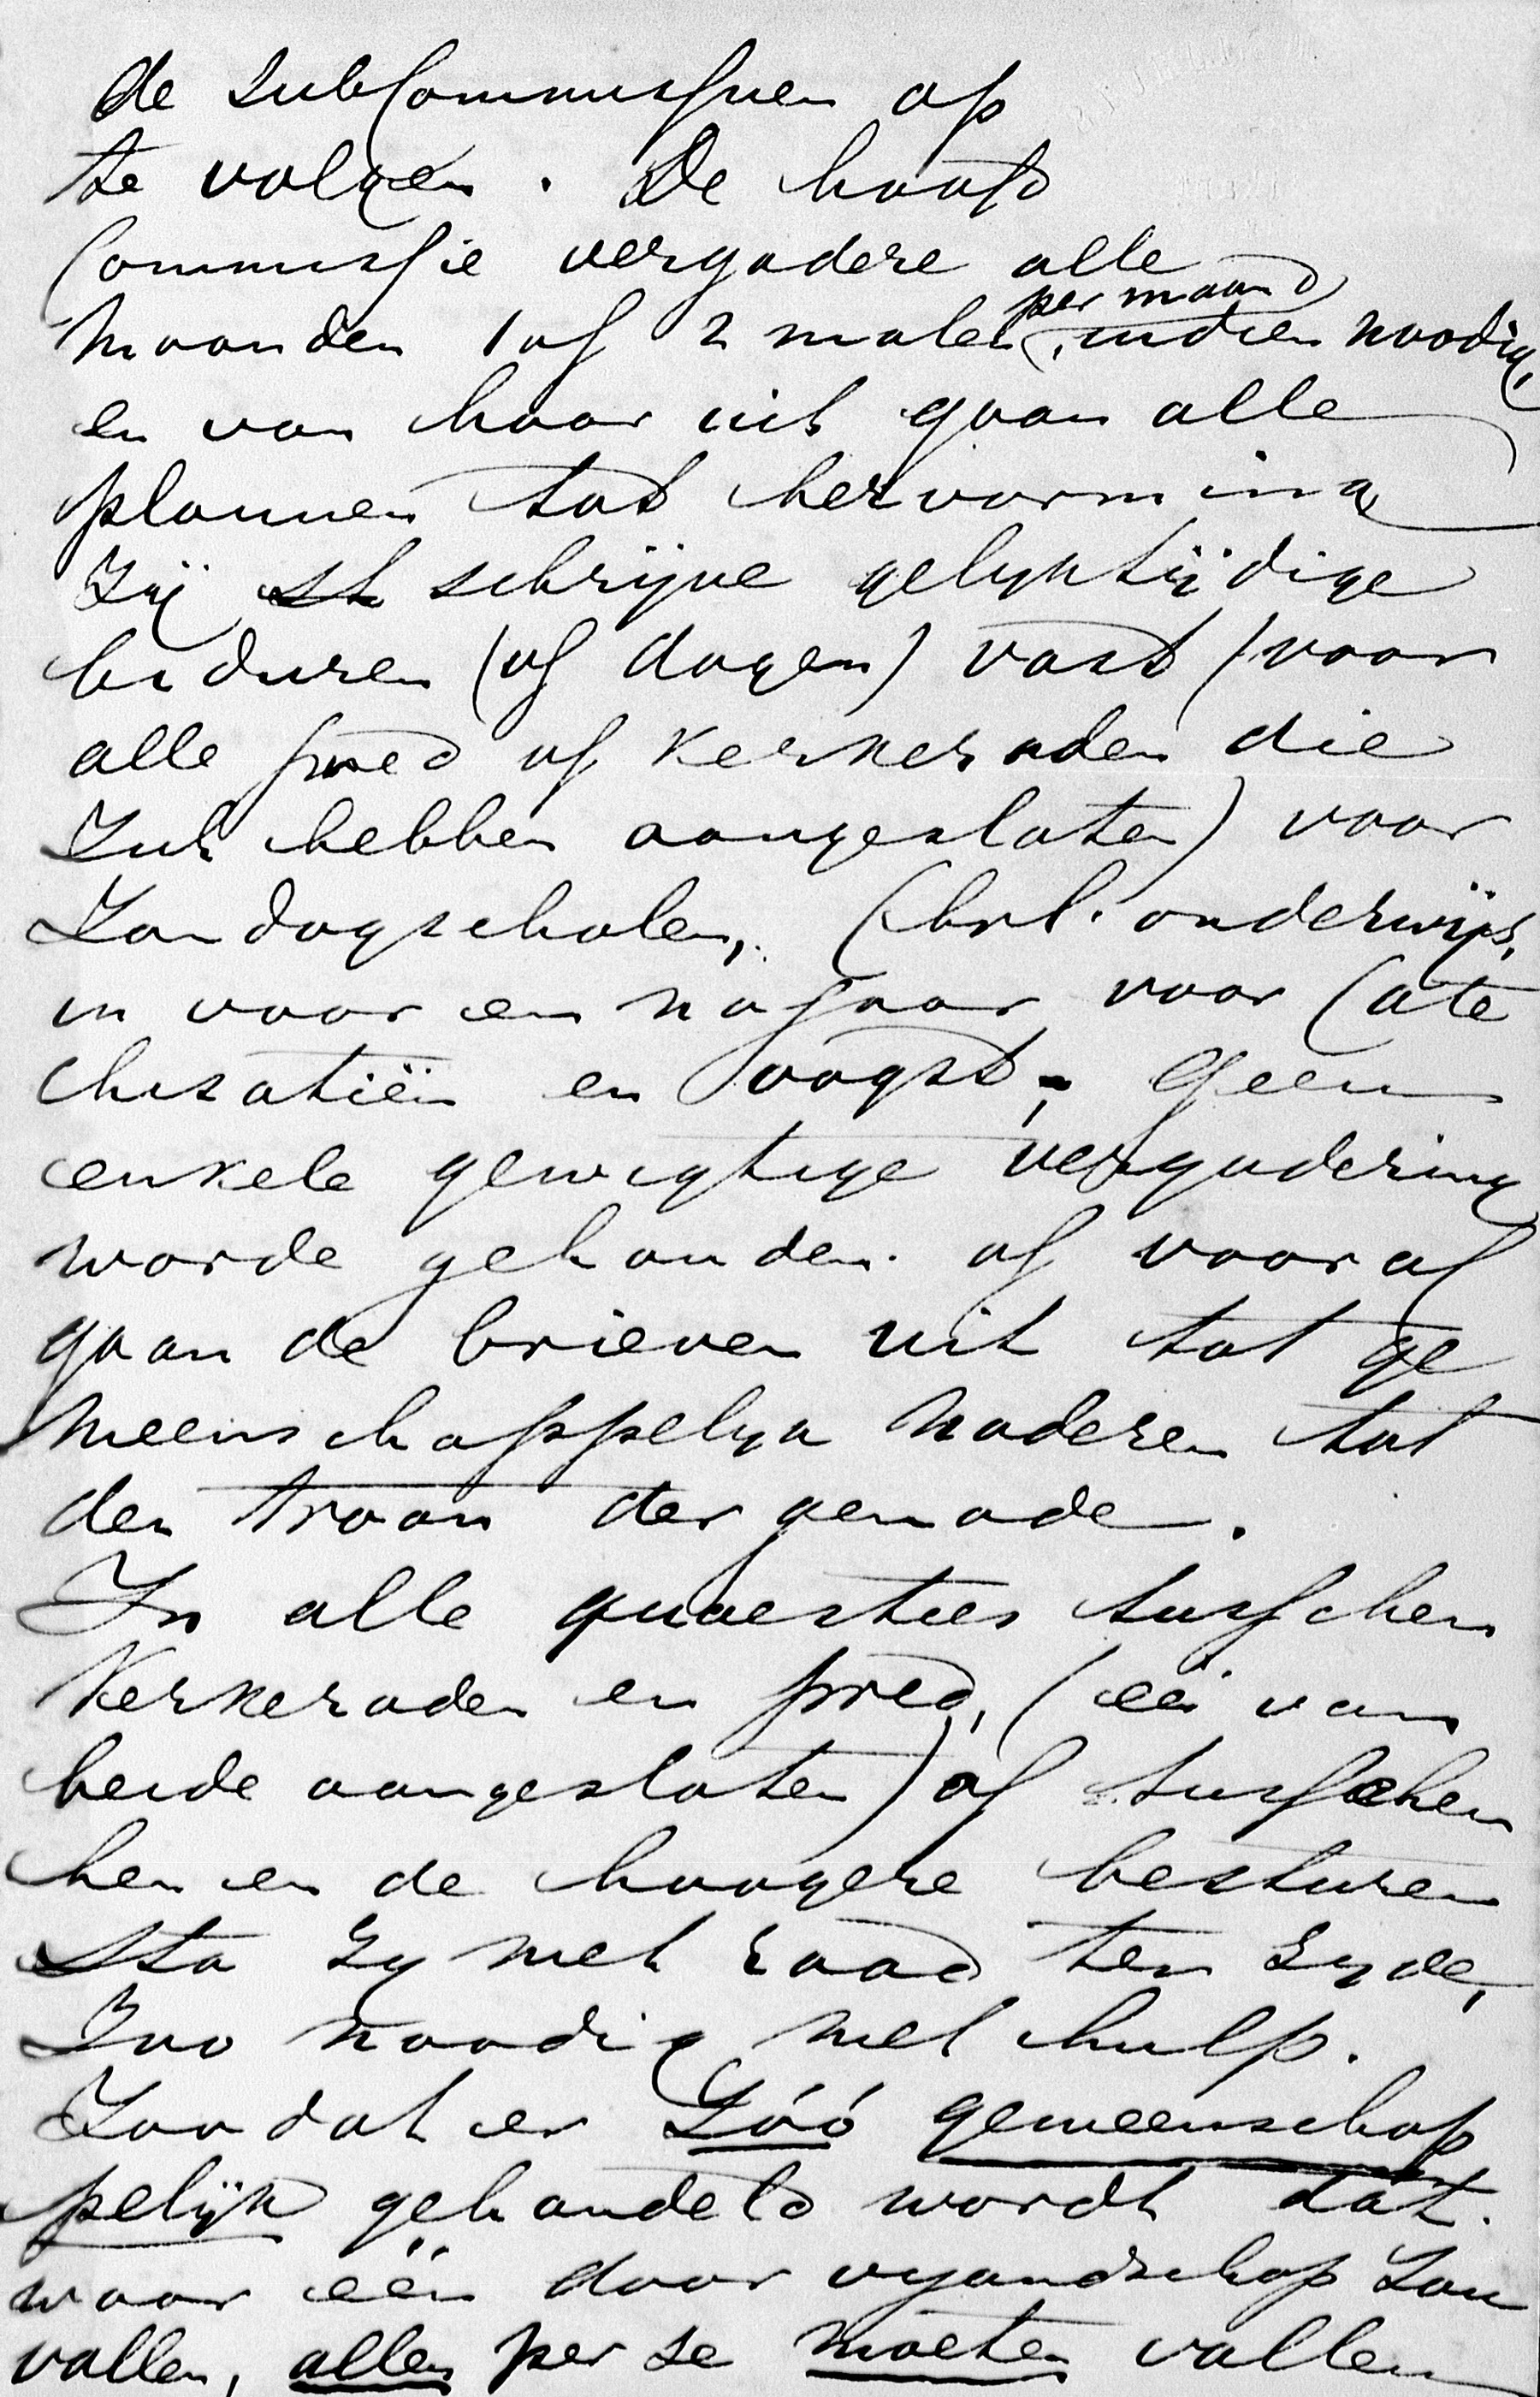 de SubCommissien op
te volgen. De hoofd
Commissie vergadere alle
maanden 1 of 2 malen per maand, indien noodig,
en van haar uit gaan alle
plannen tot hervorming
Zij st schrijve gelyktijdige
biduren (of dagen) vast (voor
alle pred of Kerkeraden die
Zich hebben aangesloten) voor
Zondagscholen, Chrl. onderwijs,
in voor en najaar voor Cate
chisatiën en Oogst; Geen
enkele gewigtige vergadering
worde gehouden. of vooraf
gaan de brieven uit tot ge
meenschappelyk naderen tot
den troon der genade.
In alle quaesties tusschen
Kerkeraden en pred, (één van
beide aangesloten) of tusschen
hen en de hoogere besturen
sta zy met raad ter zyde,
Zoo noodig met hulp.
Zoodat er Zóó gemeenschap
pelijk gehandeld wordt dat.
waar één door vyandschap Zou
vallen, allen per se moeten vallen